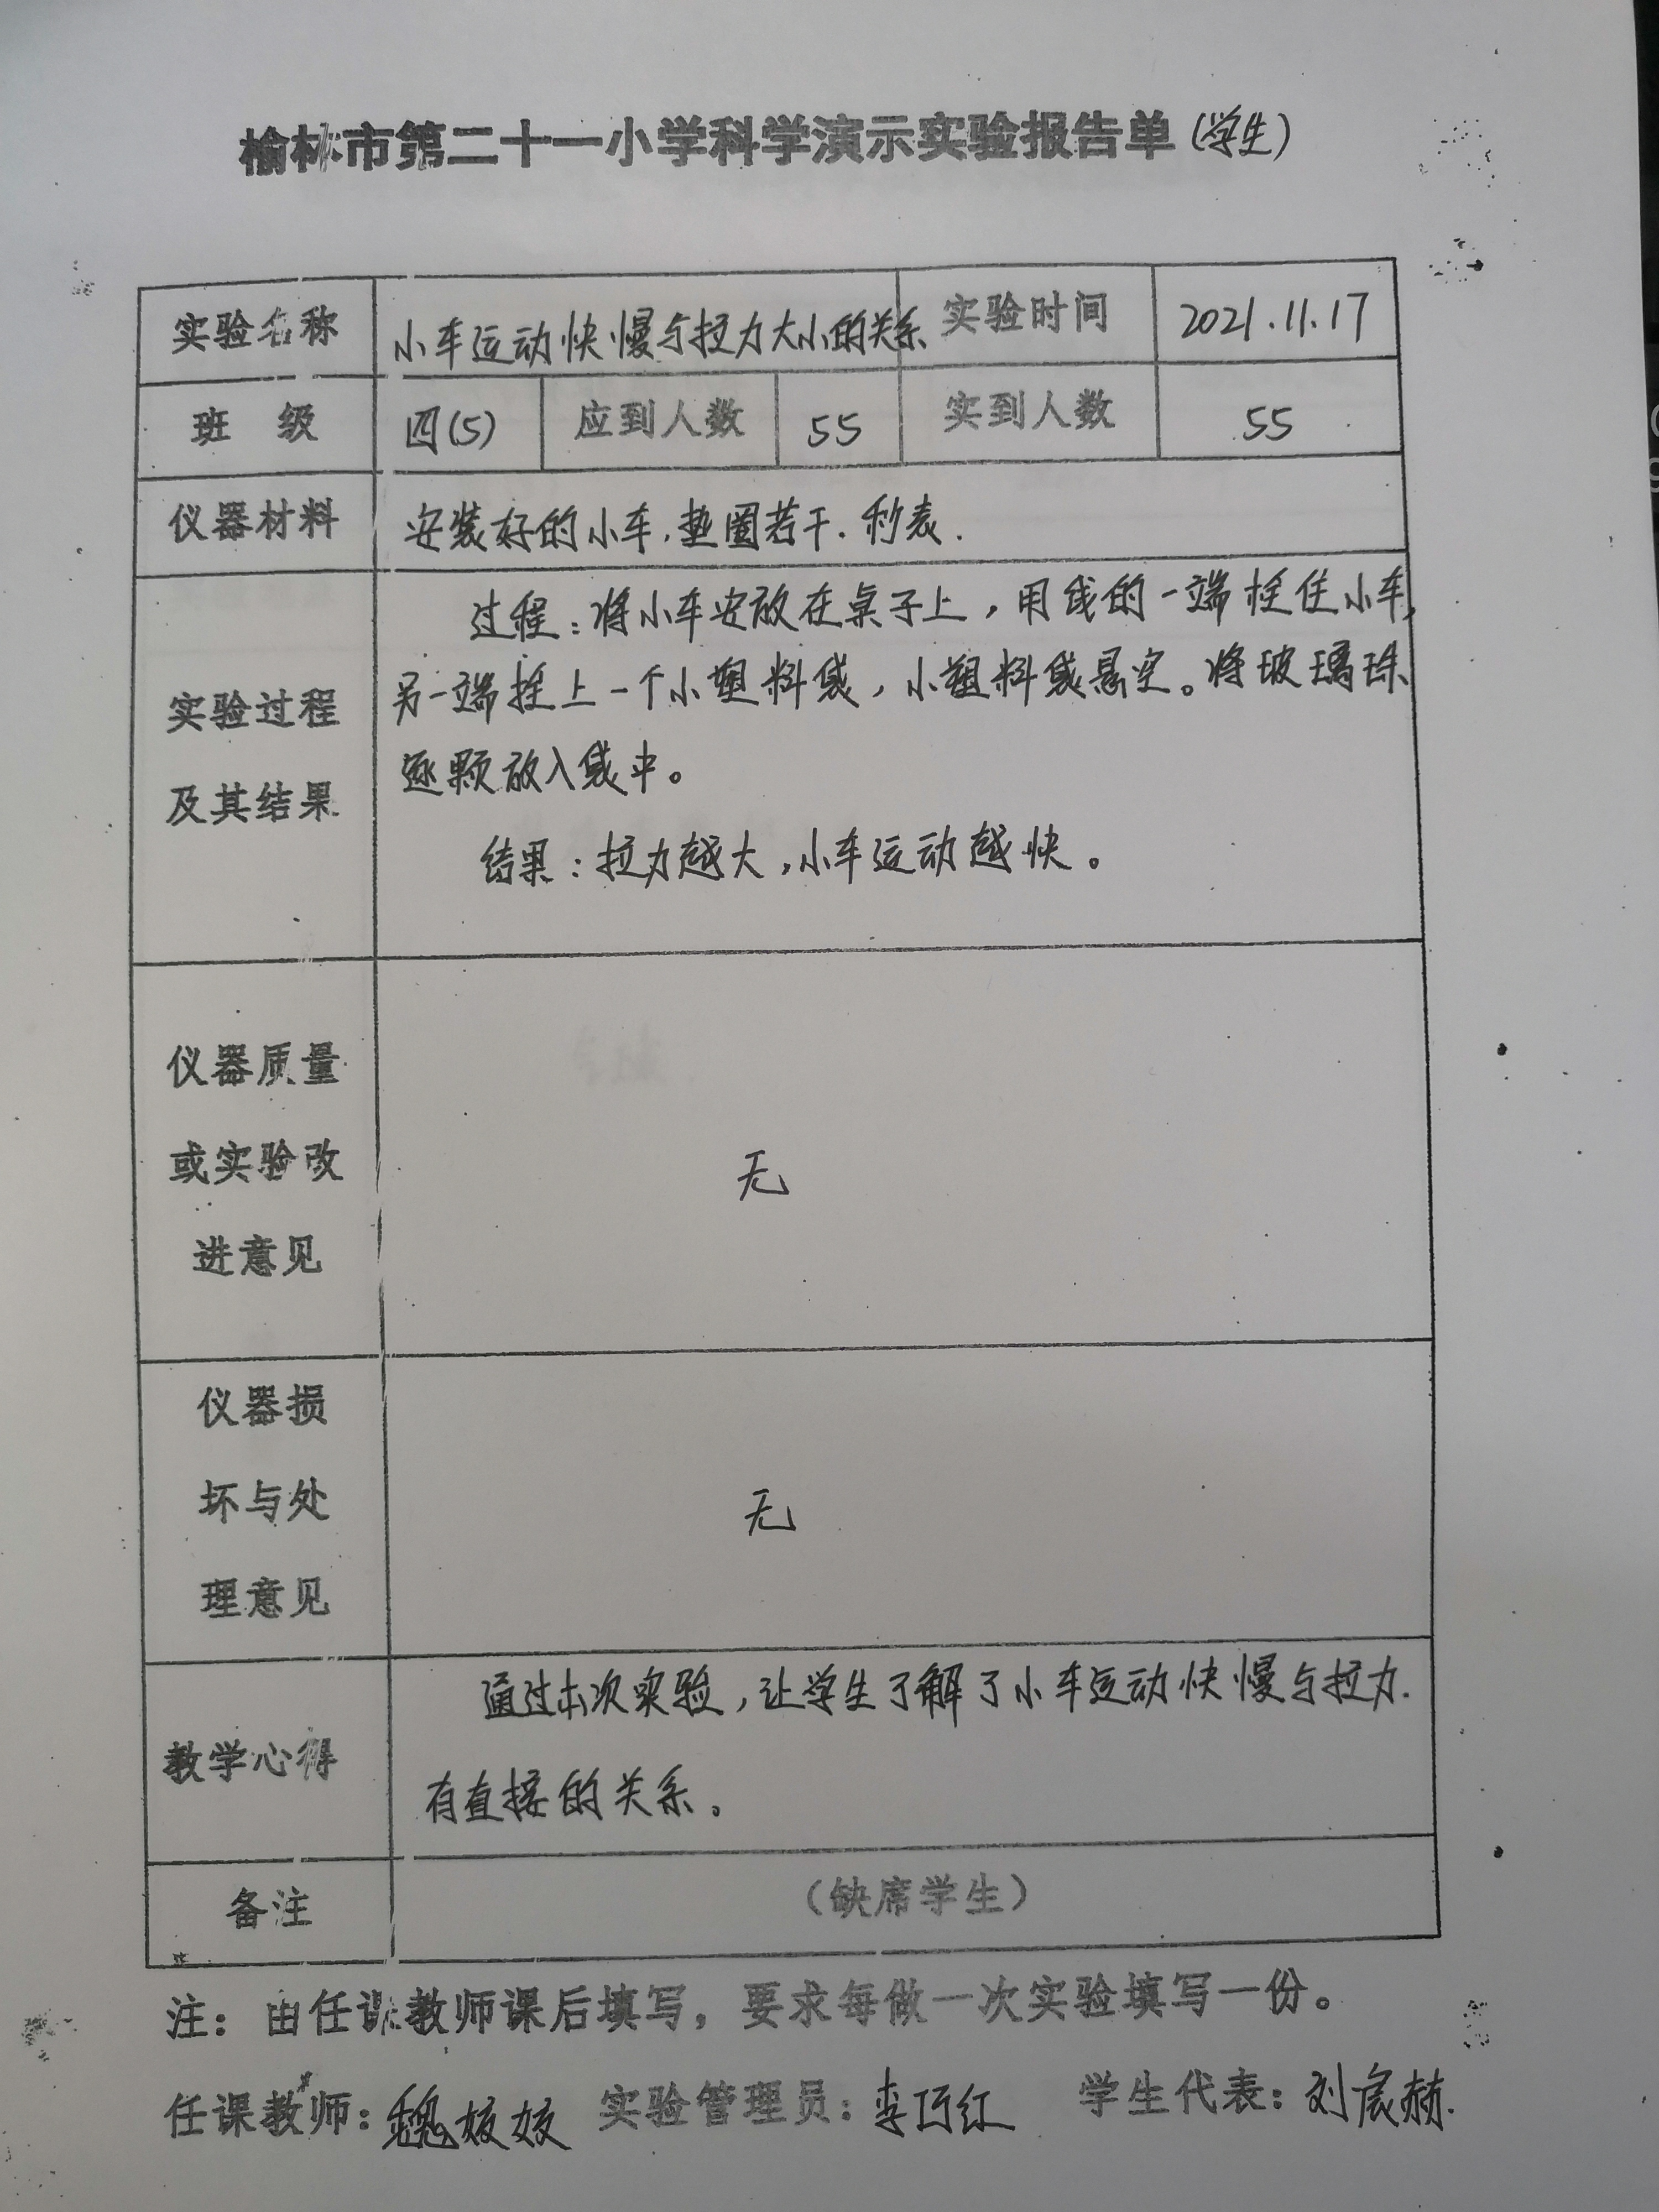 榆林市第二十一小学科学演示实验报告单(学生)
实验名称 小车运动快慢与拉力大小的关系 实验时间 2021.11.17
班 级 四(5) 应到人数 55 实到人数 55
仪器材料 安装好的小车,垫圈若干.秒表.
过程:将小车安放在桌子上,用线的一端拴住小车,
另一端拴上一个小塑料袋,小塑料袋悬空。将玻璃珠
逐颗放入袋中。
结果:拉力越大,小车运动越快。
实验过程
及其结果
仪器质量
或实验改
进意见
无
仪器损
坏与处
理意见
无
通过本次实验,让学生了解了小车运动快慢与拉力.
有直接的关系。
教学心得
备注 (缺席学生)
注:由任课教师课后填写,要求每做一次实验填写一份。
任课教师:魏姣姣 实验管理员:李巧红 学生代表:刘宸赫.